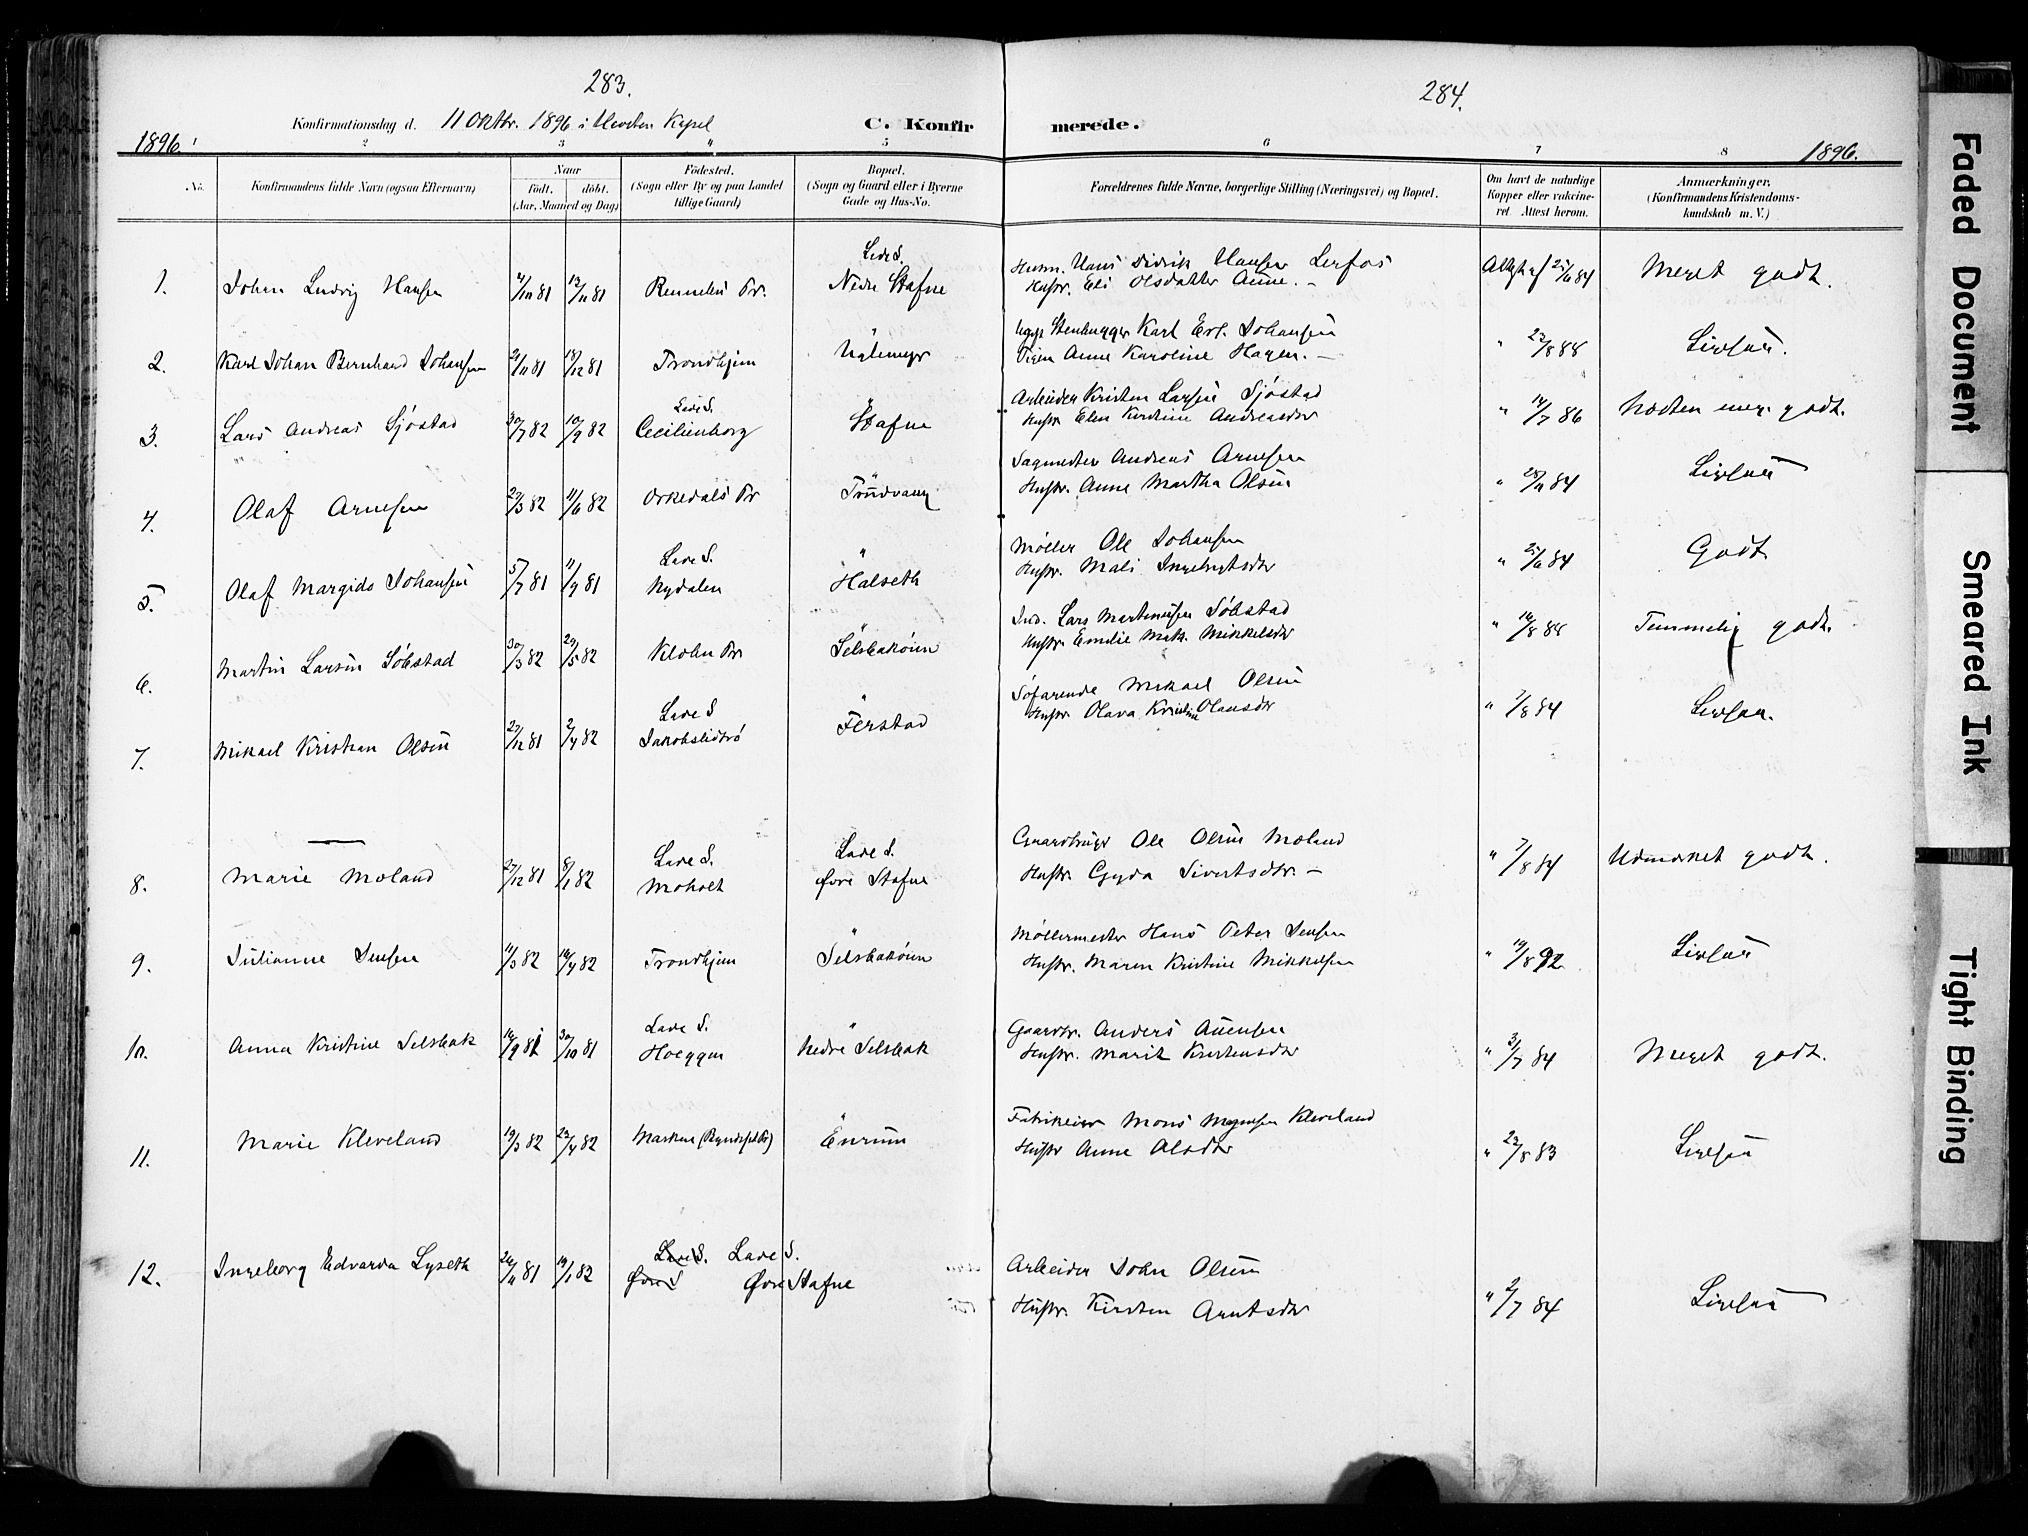 283.
284.
Konfirmationsdag d. 11 Oktbr. 1896 i Kapel
C. Konfirmerede.
1896.
1 2 3 4 5 6 7 8
1896.
No.
Konfirmandens fulde Navn (ogsaa Efternavn)
Naar
født. døbt.
(Aar, Maaned og Dag)
Fødested.
(Sogn eller By og paa Landet
tillige Gaard)
Bopæl.
(Sogn og Gaard eller i Byerne
Gade og Hus-No.
Forældrenes fulde Navne, borgerlige Stilling (Næringsvei) og Bopæl.
Om havt de naturlige
Kopper eller vakcine-
ret Attest herom.
Anmærkninger.
(Konfirmandens Kristendoms-
kundskab m. V.)
1. Johan Ludvig Hansen 4/10 81 13/11 81 Pr. Lade S. Nedre Stafne
Husm. Hans Didrik Hansen Lerfos
Hustr. Eli Olsdatter Aune. –
25/6 84 Meget godt.
2. Karl Johan Bernhard Johansen 21/11 81 18/12 81 Trondhjem
Stenhugger Karl Erl. Johansen
Pigen Anne Karoline Hagen. –
" 23/8 88 Ligesaa.
3. Lars Andreas Sjøstad 30/7 82 10/9 82 Lade S. Cecilienborg " Stafne
Arbeider Kristen Larsen Sjøstad
Hustr Elen Kirstine Andreasdtr
" 14/7 86 Næsten meg. godt.
4. Olaf Arnesen 29/3 82 11/6 82 Orkedals Pr "
Sagmester Andreas Arnesen
Hustr. Anne Martha Olsen
" 25/11 84 Ligesaa
5. Olaf Margido Johansen 5/7 81 11/9 81 Lade S. Nydalen " Halseth
Møller Ole Johansen
Hustr. Mali Ingebrigtsdtr
" 25/6 84 Godt
6. Martin Larsen Søbstad 30/3 82 29/5 82 Klæbu Pr. " Selsbakøien
Ind. Lars Martinusen Søbstad
Hustr. Emilie Mikkelsdtr
" 16/8 88 Temmelig godt.
7. Mikael Kristian Olsen 27/12 81 2/4 82 Lade S Jakobslidtrø " Ferstad
Søfarende Mikael Olsen
Hustr Olava Kristine Olausdtr
" 7/8 84 Ligesaa.
8. Marie Moland 27/12 81 8/1 82 Lade S. Moholt Lade S. Øvre Stafne
Gaardbruger Ole Olsen Moland
Hustr. Gyda Sivertsdtr. –
" 7/8 84 Udmærket godt.
9. Julianne Jensen 11/3 82 16/4 82 Trondhjem " Selsbakøien
Møllermester Hans Peter Jensen
Hustr. Maren Kristine Mikkelsen
" 19/8 92 Ligesaa
10. Anna Kristine Selsbak 16/9 81 30/10 81 Lade S. Hoeggen " Nedre Selsbak
Gaardbr. Anders
Hustr. Marit Kristensdtr
" 3/7 84 Meget godt.
11. Marie Kleveland 19/3 82 23/4 82 Marken " Enrum
Fabrikeier Mons Mogensen Kleveland
Hustr Anne Olsdtr
" 23/8 83 Ligesaa
12. Ingeborg Edvarda Lyseth 26/11 81 19/1 82 Lade S. Øvre S Lade S. Øvre Stafne
Arbeider John Olsen
Hustr. Kirsten Arntsdtr
" 2/7 84 Ligesaa
Faded Document
Smeared Ink
Tight Binding